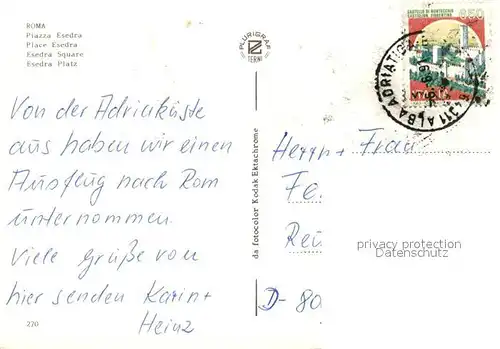 ROMA
Piazza Esedra
Place Esedra
Esedra Square
Esedra Platz
Von der Adriaküste
aus haben wir einen
Ausflug nach Rom
unternommen.
Viele Grüße von
hier senden Karin +
Heinz
220
PLURIGRAF
TERNI
da fotocolor Kodak Ektachrome
CASTELLO DI MONTECCHIO
CASTIGLION FIORENTINO
650
64011 ALBA ADRIATICA
Herrn + Frau
Fe
Reu
D-80
privacy protection
Datenschutz